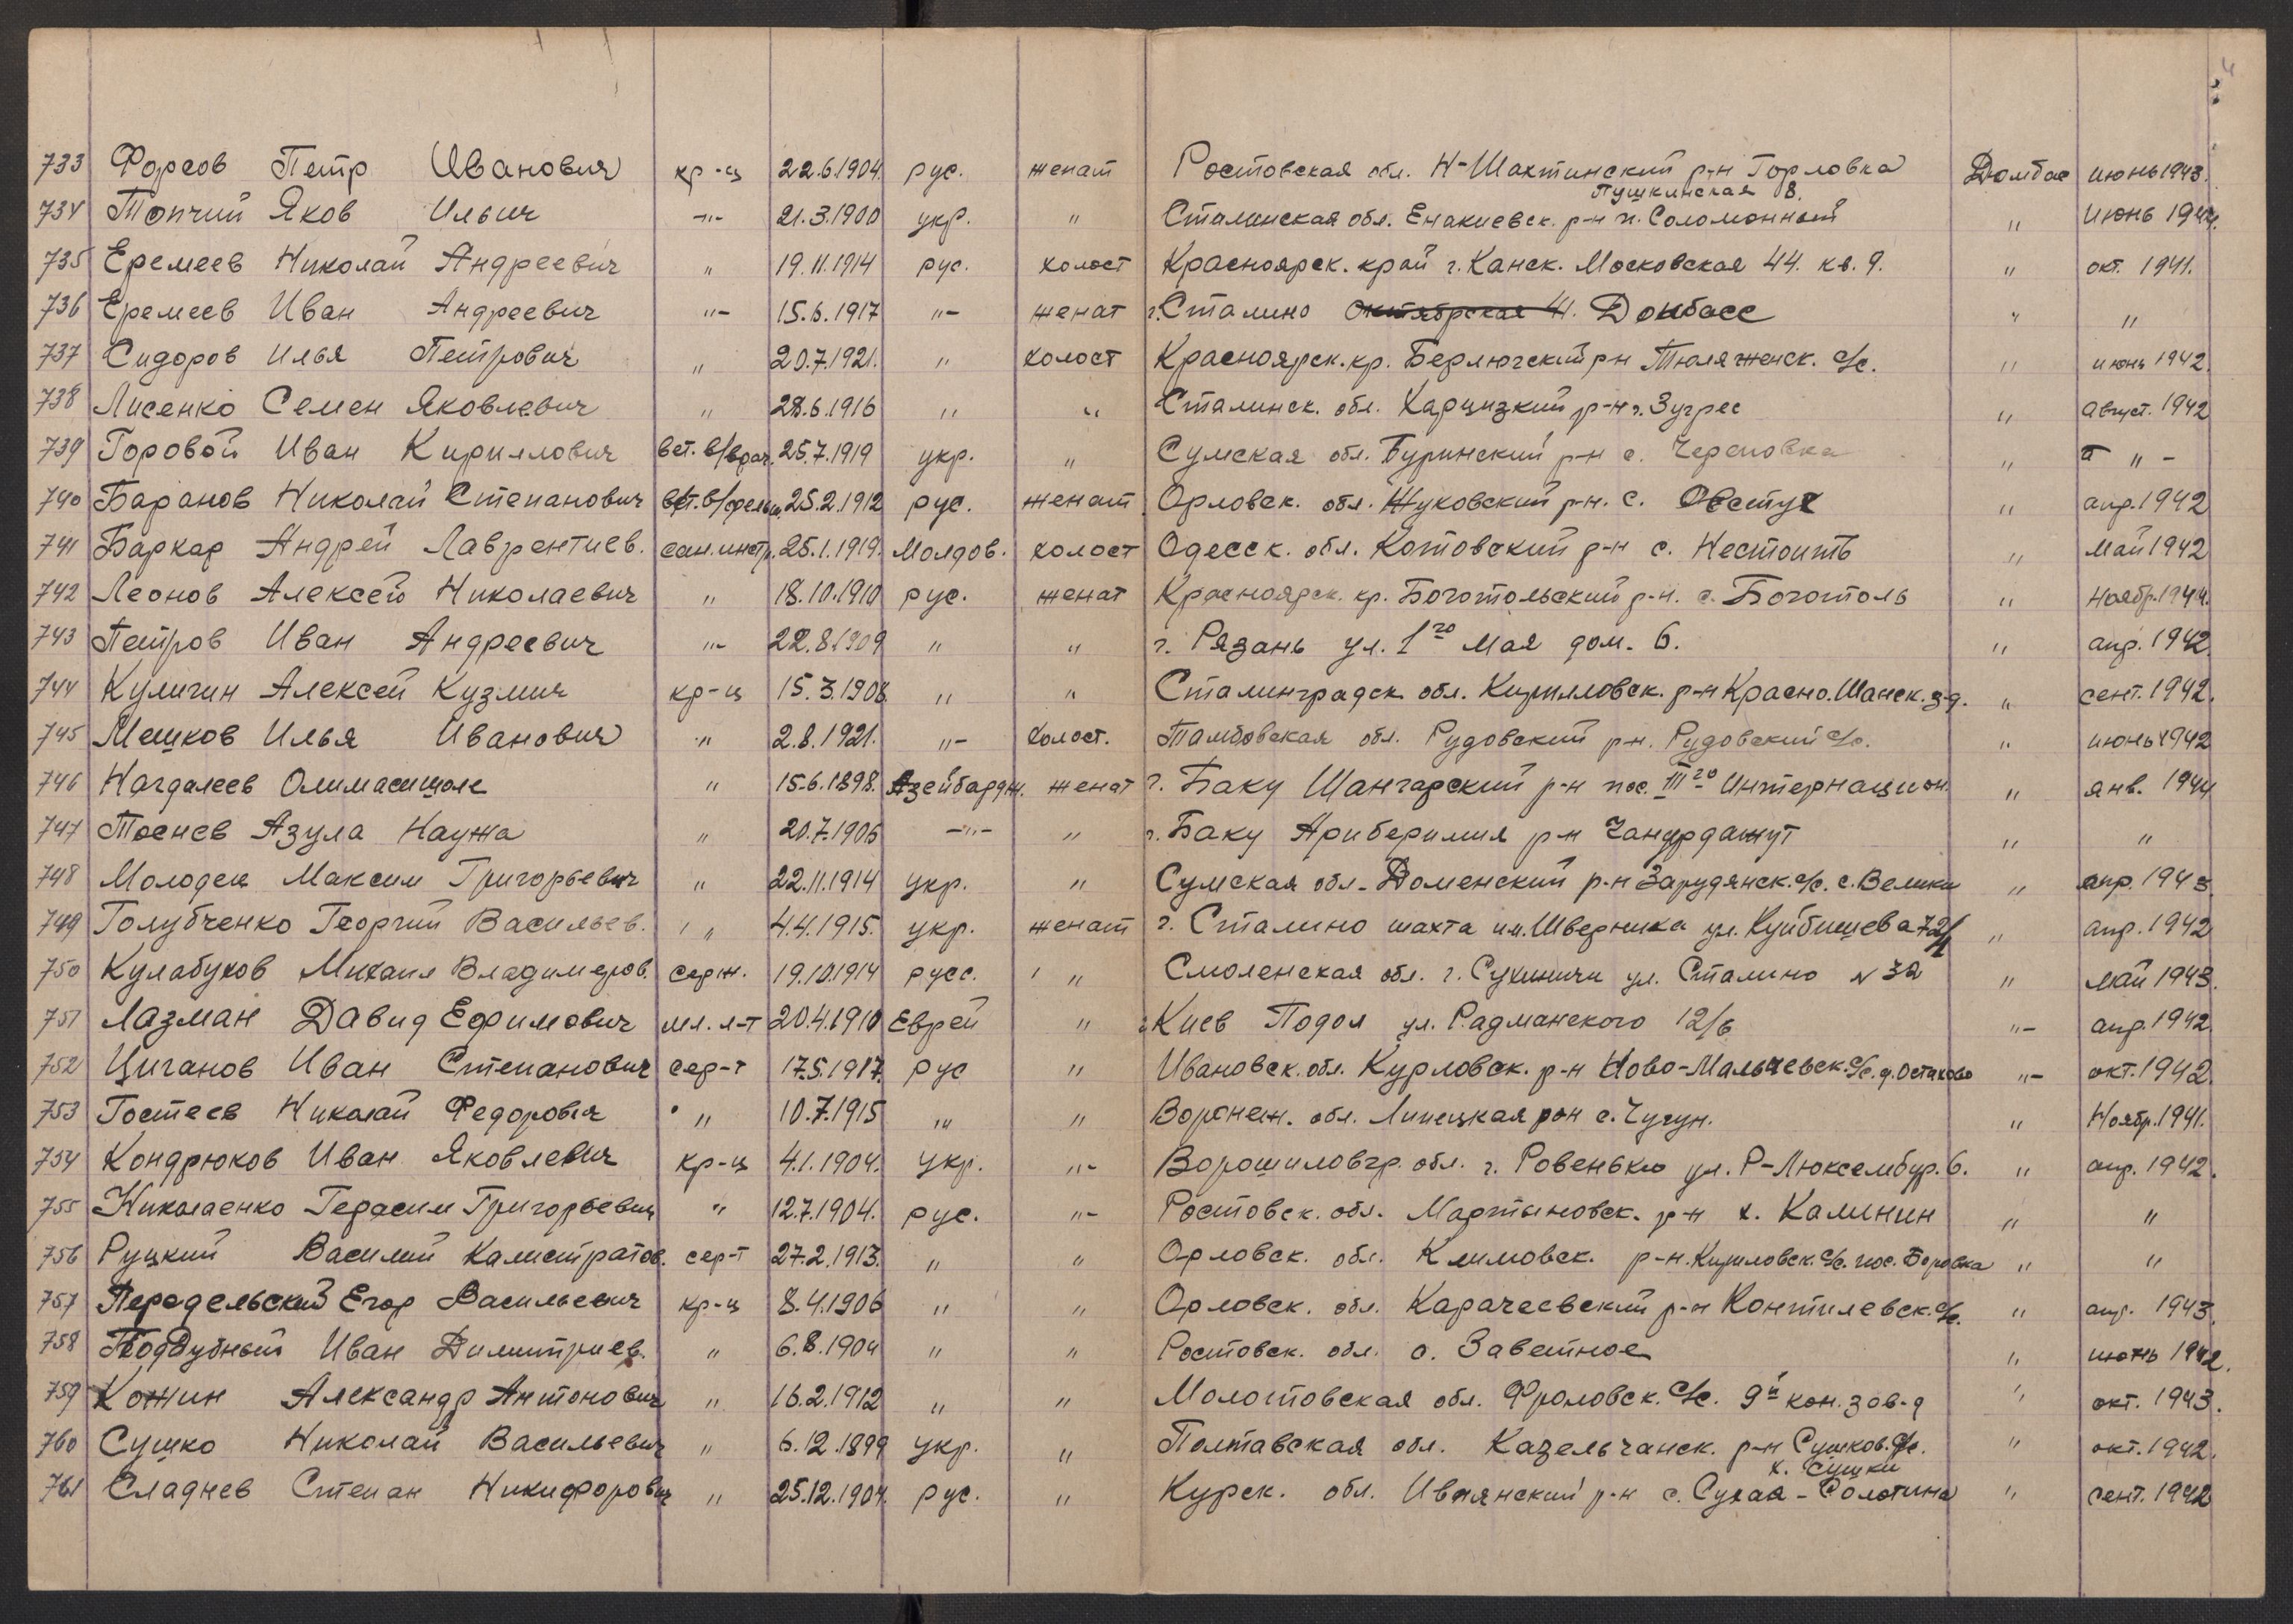 733 Форсов Петр Иванович кр-ц 22.6.1904. рус. женат Ростовская обл. Н-Шахтинский р-н Горловка Домбас июнь 1943.
Пушкинская 8.
734 Топчий Яков Ильич -"- 21.3.1900 укр. " Сталинская обл. Енакиевск. р-н п. " июнь 1944.
735 Еремеев Николай Андреевич " 19.11.1914 рус. холост Красноярск. край г. Канск. Московская 44. кв. 9. " окт. 1941.
736 Еремеев Иван Андреевич "- 15.6.1917 "- женат г. Сталино Октябрская 41. Донбасс " "
737 Сидоров Илья Петрович " 20.7.1921. " холост Красноярск. кр. Берлючский р-н с/с. " июнь 1942.
738 Лисенко Семен Яковлевич " 28.6.1916 " " Сталинск. обл. Харцизкий р-н г. Зугрес " август. 1942
739 Горовой Иван Кирилович вет. в/врач. 25.7.1919 укр. " Сумская обл. Буринский р-н с. Череповка " " -
740 Баранов Николай Степанович вет. в/фельш. 25.2.1912 рус. женат Орловск. обл. Жуковский р-н. с. Овстух " апр. 1942
741 Баркар Андрей Лаврентиев. сан. инстр. 25.1.1919. Молдов. холост Одесск. обл. Котовский р-н с. Нестоить " май 1942
742 Леонов Алексей Николаевич " 18.10.1910 рус. женат Красноярск. кр. Боготольский р-н. с. Боготоль " ноябр. 1944.
743 Петров Иван Андреевич "- 22.8.1909 " " г. Рязань ул. 1го Мая дом. 6. " апр. 1942.
744 Куличин Алексей Кузмич кр-ц 15.3.1908. " " Сталинградск обл. Кирилловск. р-н Красно. Шанск. з-д. " сент. 1942.
745 Мешков Илья Иванович " 2.8.1921. "- холост. Тамбовская обл. Рудовский р-н. Рудовский с/с. " июнь 1942
746 Нагдалеев Олимасишоле " 15.6.1898. Азейбардж. женат г. Баку Шангарский р-н пос. III го Интернацион. " янв. 1944
747 Тоснев Азула Наужа " 20.7.1906 -"- " г. Баку Ариберимия р-н Чандрдашут " "
748 Молодец Максим Григорьевич " 22.11.1914 укр. " Сумская обл. Доменский р-н Зарудянск. с/с. с. Велики " апр. 1943.
749 Голубченко Георгий Васильев. " 4.4.1915. укр. женат г. Сталино шахта им. Шверника ул. Куйбишева 72/1 " апр. 1942
750 Кулабухов Михаил Владимеров. серж. 19.10.1914 русс. " Смоленская обл. г. Сухиничи ул. Сталино N 32 " май 1943.
751 Лазман Давид Ефимович мл. л-т 20.4.1910 Еврей " г. Киев Подол ул. Радманского 12/6 "- апр. 1942.
752 Циганов Иван Степанович сер-т 17.5.1917. рус " Ивановск. обл. Курловск. р-н Ново-Мальчевск. с/с. д. Остахово "- окт. 1942.
753 Гостеев Николай Федорович " 10.7.1915 " " Воронеж. обл. Липецкая рон с. Чугун. " Ноябр. 1941.
754 Кондрюков Иван Яковлевич кр-ц 4.1.1904. укр. "- Ворошиловгр. обл. г. Ровенько ул. Р-Люксембур. 6. " апр. 1942.
755 Николаенко Герасим Григорьевич " 12.7.1904. рус. "- Ростовск. обл. Мартыновск. р-н х. Калинин " "
756 Руцкий Василий Калистратов. сер-т 27.2.1913. " " Орловск. обл. Климовск. р-н. Кириловск. с/с. пос. Боровка " "
757 Передельский Егор Васильевич кр-ц 8.4.1906 " " Орловск. обл. Карачаевский р-н Контилевск. с/с. " апр. 1943.
758 Поддубный Иван Димитриев. " 6.8.1904 " " Ростовск. обл. с. Заветное " июнь 1942.
759 Кожин Александр Антонович " 16.2.1912 " " Молотовская обл. Фроловск. с/с. 9й кон. зав-д " окт. 1943.
760 Сушко Николай Васильевич " 6.12.1899 укр. " Полтавская обл. Казельчанск. р-н Сушков. с/с. " окт. 1942.
х. Сушки
761 Сладнев Степан Никифорович " 25.12.1904. рус. " Курск. обл. Ивнянский р-н с. Сухая-Солотина " сент. 1942